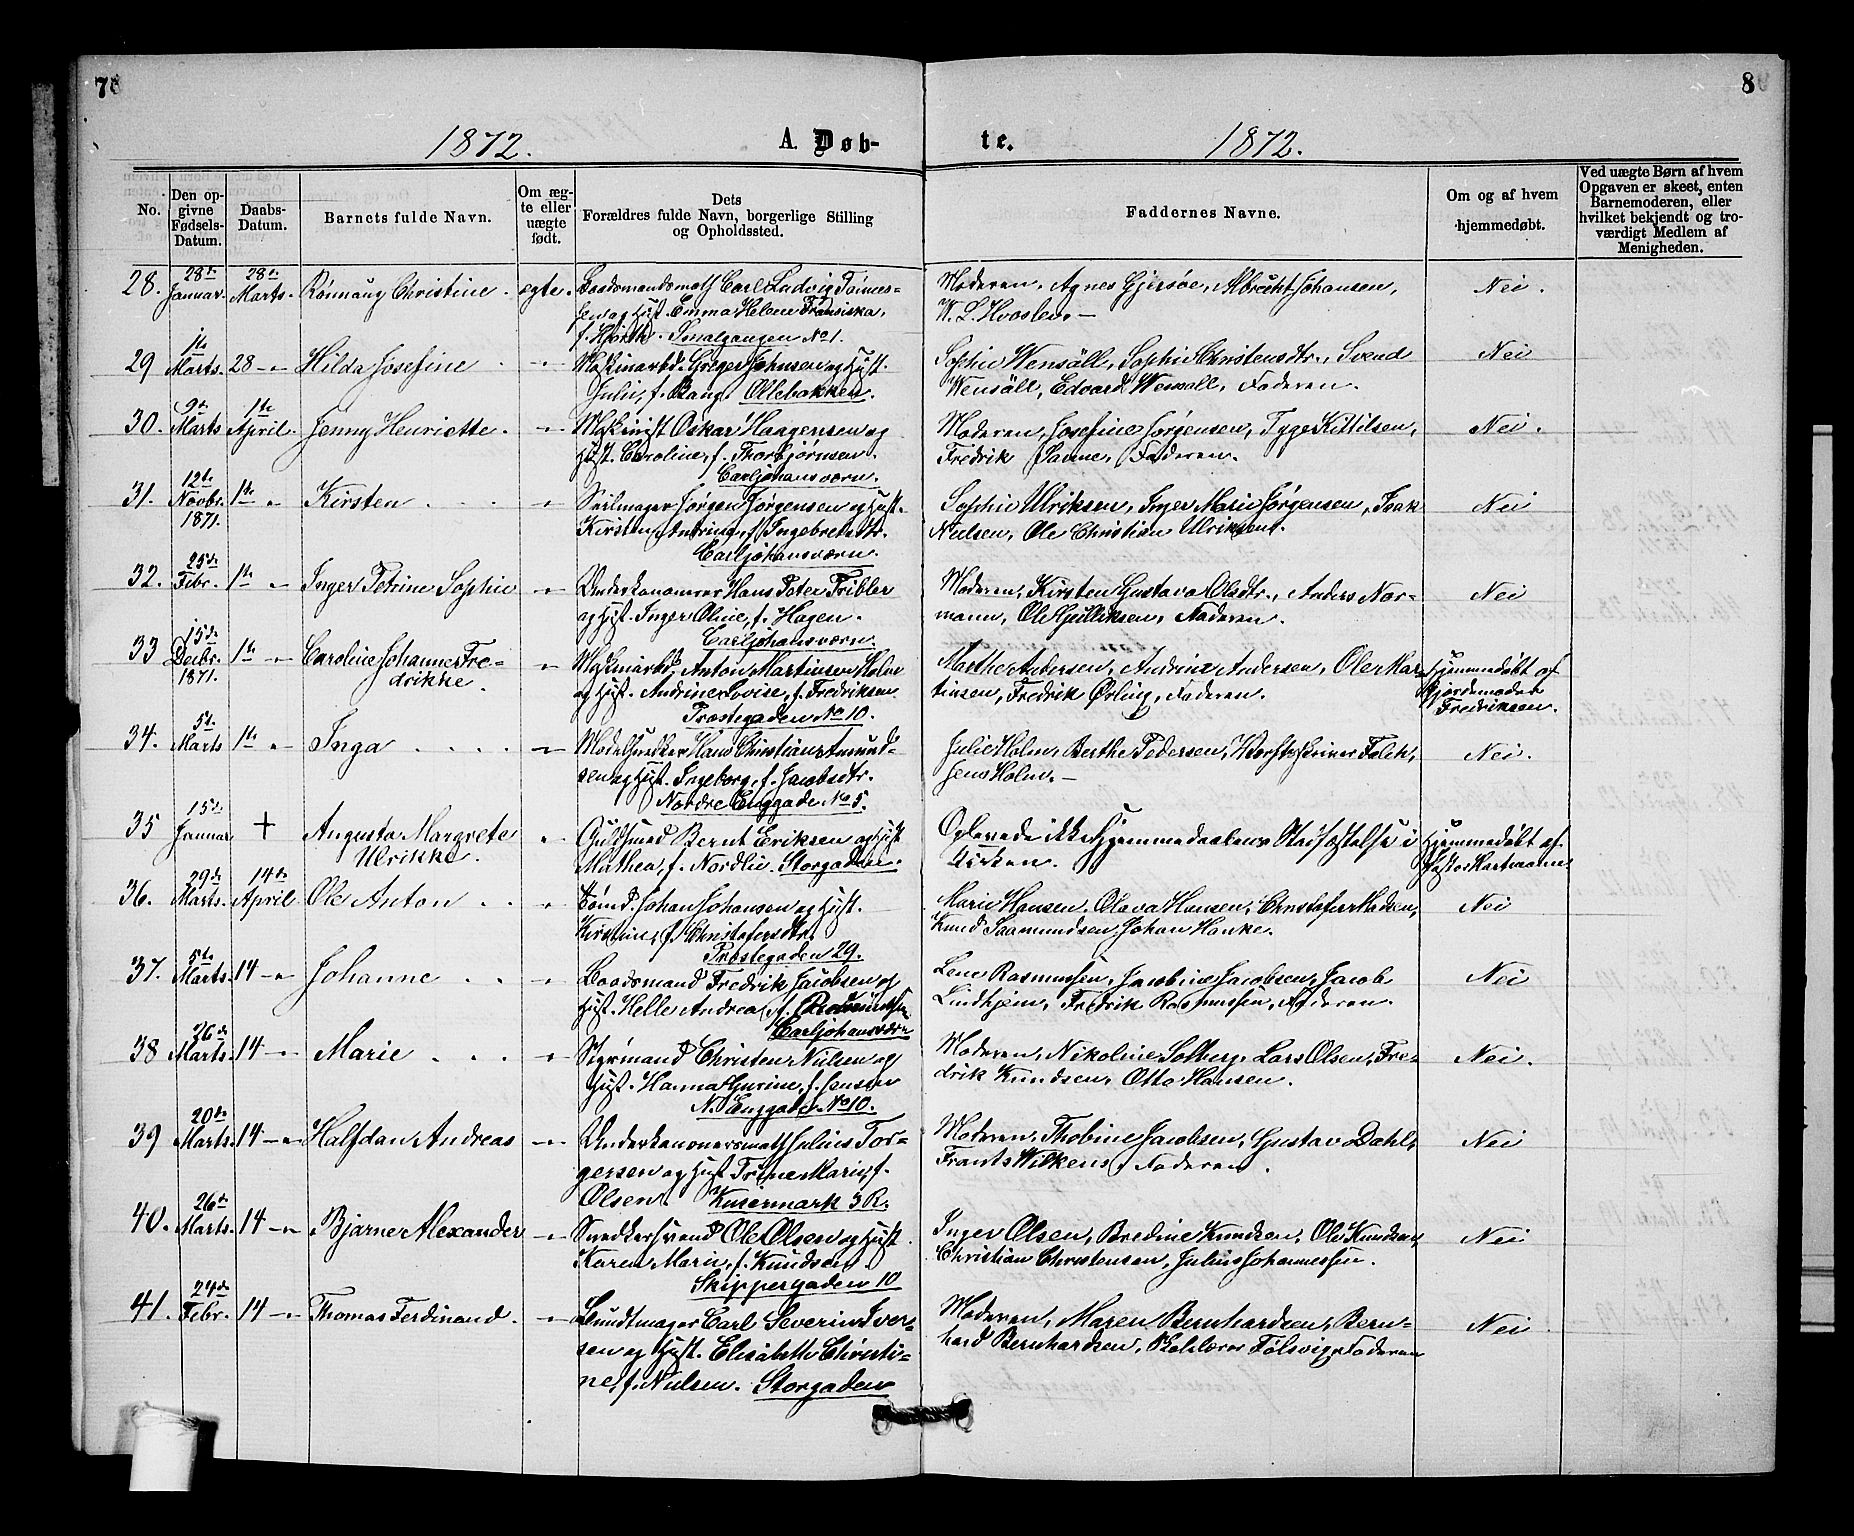 7
8
1872.
A. Døb-
te.
1872.
No.
Den op-
givne
Fødsels-
Datum.
Daabs-
Datum.
Barnets fulde Navn.
Om æg-
te eller
uægte
født.
Dets
Forældres fulde Navn, borgerlige Stilling
og Opholdssted.
Faddernes Navne.
Om og af hvem
hjemmedøbt.
Ved uægte Børn af hvem
Opgaven er skeet, enten
Barnemoderen, eller
hvilket bekjendt og tro-
værdigt Medlem af
Menigheden.
28.
28de
Januar.
28de
Marts.
Rönnaug Christine.
ægte.
Carl Ludvig Tönnes-
sen og Hust. Emma Helene Fransiska,
f. Hjorth. No 1.
Moderen, Agnes Gjersøe, Albrecht Johansen,
W. L. Hvoslev. -
Nei.
29
1ste
Marts.
28 - "
Hilda Josefine
"
Maskinarbd. Greger Johnsen og Hust.
Julie, f. Bang. Ollebakken.
Sophie Wensöll, Sophie Christensdtr., Svend
Wensöll, Edvard Wensöll, Faderen.
Nei
30.
9de
Marts
1ste
April.
Jenny Henriette.
"
Maskinist Oskar Haagensen og
Hust. Caroline, f. Thorbjørnsen.
Carljohansværn.
Moderen, Josefine Jørgensen, Tyge Kittilsen,
Fredrik Sanne, Faderen.
Nei.
31.
12te
Novbr.
1871.
1ste "
Kirsten
"
Seilmager Jørgen Jørgensen og Hust.
Kirsten f. Ingebretsdtr.
Carljohansværn.
Sophie Ulriksen, Inger Marie Jørgensen, Isak
Nielsen, Ole Christian Ulriksen.
Nei
32.
25de
Febr.
1ste "
Inger Petrine Sophie
"
Underkanoneer Hans Peter Fribler
og Hust. Inger Oline, f. Hagen.
Carljohansværn.
Moderen, Kirsten Gustava Olsdtr., Anders Nor-
mann, Ole Faderen.
Nei
33
15de
Decbr.
1871.
1ste "
Caroline Johanne Fre-
drikke.
"
Maskinarbd. Anton Martinsen Holm
og Hust. Andrine Lovise, f. Fredriksen
Præstegaden No 10.
Marthe Andersen, Andrine Andersen, Ole Mar-
tinsen, Fredrik Faderen.
Hjemmedøbt af
Gjordemoder
Fredriksen.
34.
5te
Marts
1ste "
Inga
"
Modelsnedker Hans Christian Amund-
sen og Hust. Ingeborg, f. Jacobsdtr.
Nordre Enggade No 5.
Julie Holm, Berthe Pedersen, Værftsskriver Falck,
Jens Holm. -
Nei.
35
15de
Januar
+
Augusta Margrete
Ulrikke.
"
Guldsmed Bernt Eriksen og Hust
Mathea, f. Nordlie. Storgaden.
Oplevede ikke Hjemmedaabens Stadfæstelse i
Kirken.
Hjemmedøbt af
Pastor Hartmann
36.
29de
Marts.
14de
April
Ole Anton
"
Sömd. Johan Johansen og Hust.
Kirstine, f. Christofersdtr.
Præstegaden 29.
Marie Hansen, Olava Hansen, Christofer Madsen,
Knud Saamundsen, Johan Hanke.
Nei
37.
5te
Marts.
14 - "
Johanne
"
Baadsmand Fredrik Jacobsen og
Hust. Helle Andrea, f. Rasmussen
Carljohansværn
Lene Rasmussen, Jacobine Jacobsen, Jacob
Lindhjem, Fredrik Rasmussen, Faderen.
Nei
38
26de
Marts.
14 - "
Marie
"
Styrmand Christen Nielsen og
Hust. Hanna Gurine, f. Jensen
N. Enggade No 10.
Moderen, Nikoline Solberg, Lars Olsen, Fre-
drik Knudsen, Otto Hansen.
Nei.
39
20de
Marts.
14 - "
Halfdan Andreas
"
Underkanoneersmath Julius Tor-
gersen og Hust Trine Marie, f.
Olsen. 3 R.
Moderen, Thobine Jacobsen, Gustav Dahl,
Frants Wilkens, Faderen.
Nei
40.
26de
Marts.
14 - "
Bjarne Alexander
"
Snedkersvend Ole Olsen og Hust.
Karen Marie, f. Knudsen
Skippergaden 10
Inger Olsen, Bredine Knudsen, Ole Knudsen,
Christian Christensen, Julius Johannessen.
Nei
41.
24de
Febr.
14 - "
Thomas Ferdinand.
"
Bundtmager Carl Severin Iver-
sen og Hust. Elisabeth Christi-
ne, f. Nielsen. Storgaden
Moderen, Maren Bernhardsen, Bern-
hard Bernhardsen, Faderen
Nei